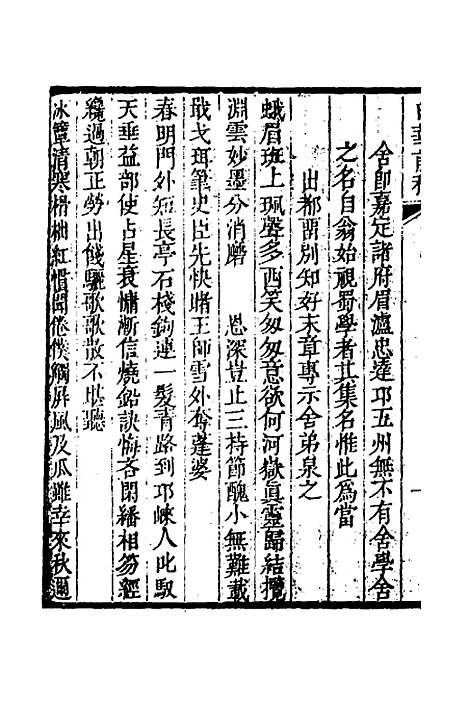 舍卽嘉定諸府眉瀘忠達邛五州無不有舍學舍
之名自翁始視蜀學者其集名惟此為當
出都留別知好末章專示舍弟泉之
蛾眉班上珮聲多西笑匆匆意欲何河嶽眞靈歸結攬
淵雲妙墨分消磨 恩深豈止三持節醜小無難載
戢戈珥筆史臣先快睹王師雪外奪蓬婆
春明門外短長亭石棧鉤連一髮青路到邛崍人此馭
天垂益部使占星衰慵漸信燒鉛訣悔吝閑繙相笏經
纔過朝正勞出餞驪歌歌散不堪聽
冰簟清寒榾柮紅慣聞倦僕觸屏風及瓜雖幸來秋邇